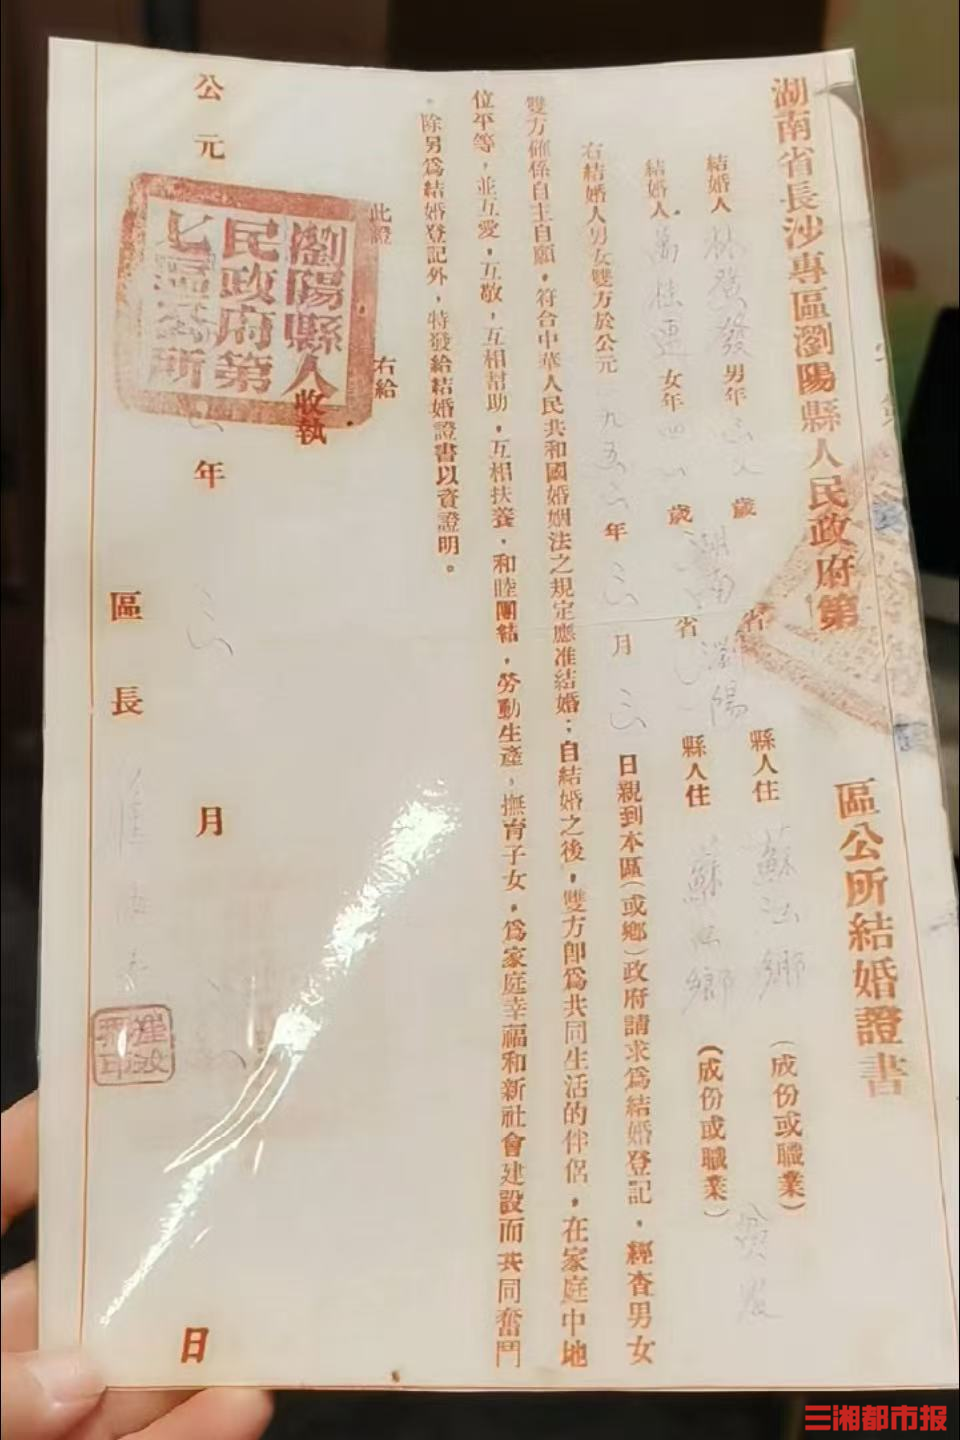 湖南省長沙專區瀏陽縣人民政府第 區公所結婚證書
結婚人 林 發 男年 歲 湖南 省 瀏陽 縣人住 蘇 鄉 (成份或職業)
結婚人 萬桂連 女年 歲 省 縣人住 蘇 鄉 (成份或職業)
右結婚人男女雙方於公元 一九五 年 三 月 三 日親到本區(或鄉)政府請求爲結婚登記,經查男女
雙方確係自主自願,符合中華人民共和國婚姻法之規定應准結婚;自結婚之後,雙方卽爲共同生活的伴侶,在家庭中地
位平等,並互愛,互敬,互相幫助,互相扶養,和睦團結,勞動生產,撫育子女,爲家庭幸福和新社會建設而共同奮鬥
。除另爲結婚登記外,特發給結婚證書以資證明。
此證 右給
收執
瀏陽縣人
民政府第
七區公所
公元 年 三 月 日
區長
三湘都市报